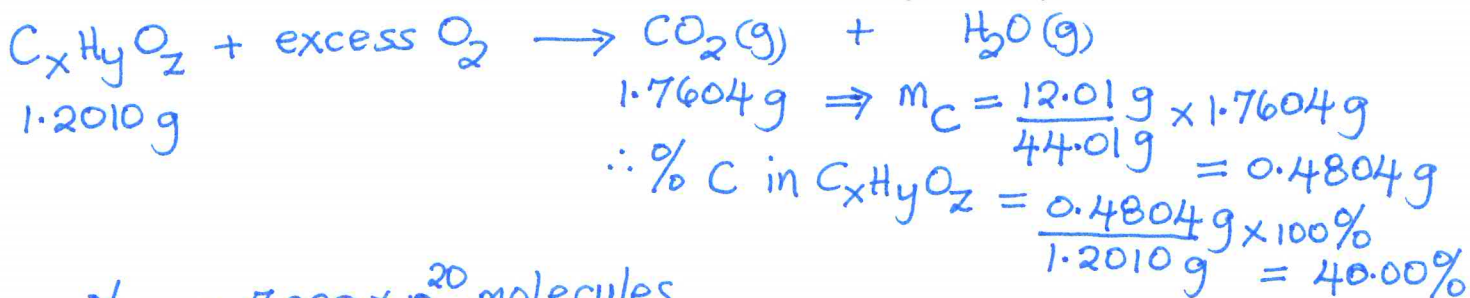 CxHyOz + excess O2 → CO2(g) + H2O(g)
1.2010 g 1.7604 g ⇒ mC = 12.01 g / 44.01 g × 1.7604 g
= 0.4804 g
∴ % C in CxHyOz = 0.4804 g × 100% / 1.2010 g
= 40.00%
20 molecules